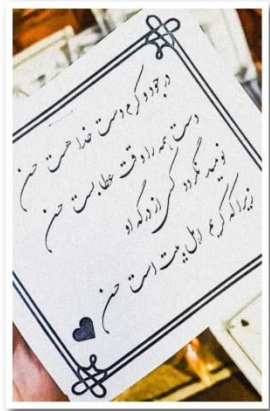 در جود و کرم دست خدا هست حسن
دست همه را وقت عطا بست حسن
نومید نگردد کسی از درگه او
زیرا که کریم اهل بیت است حسن